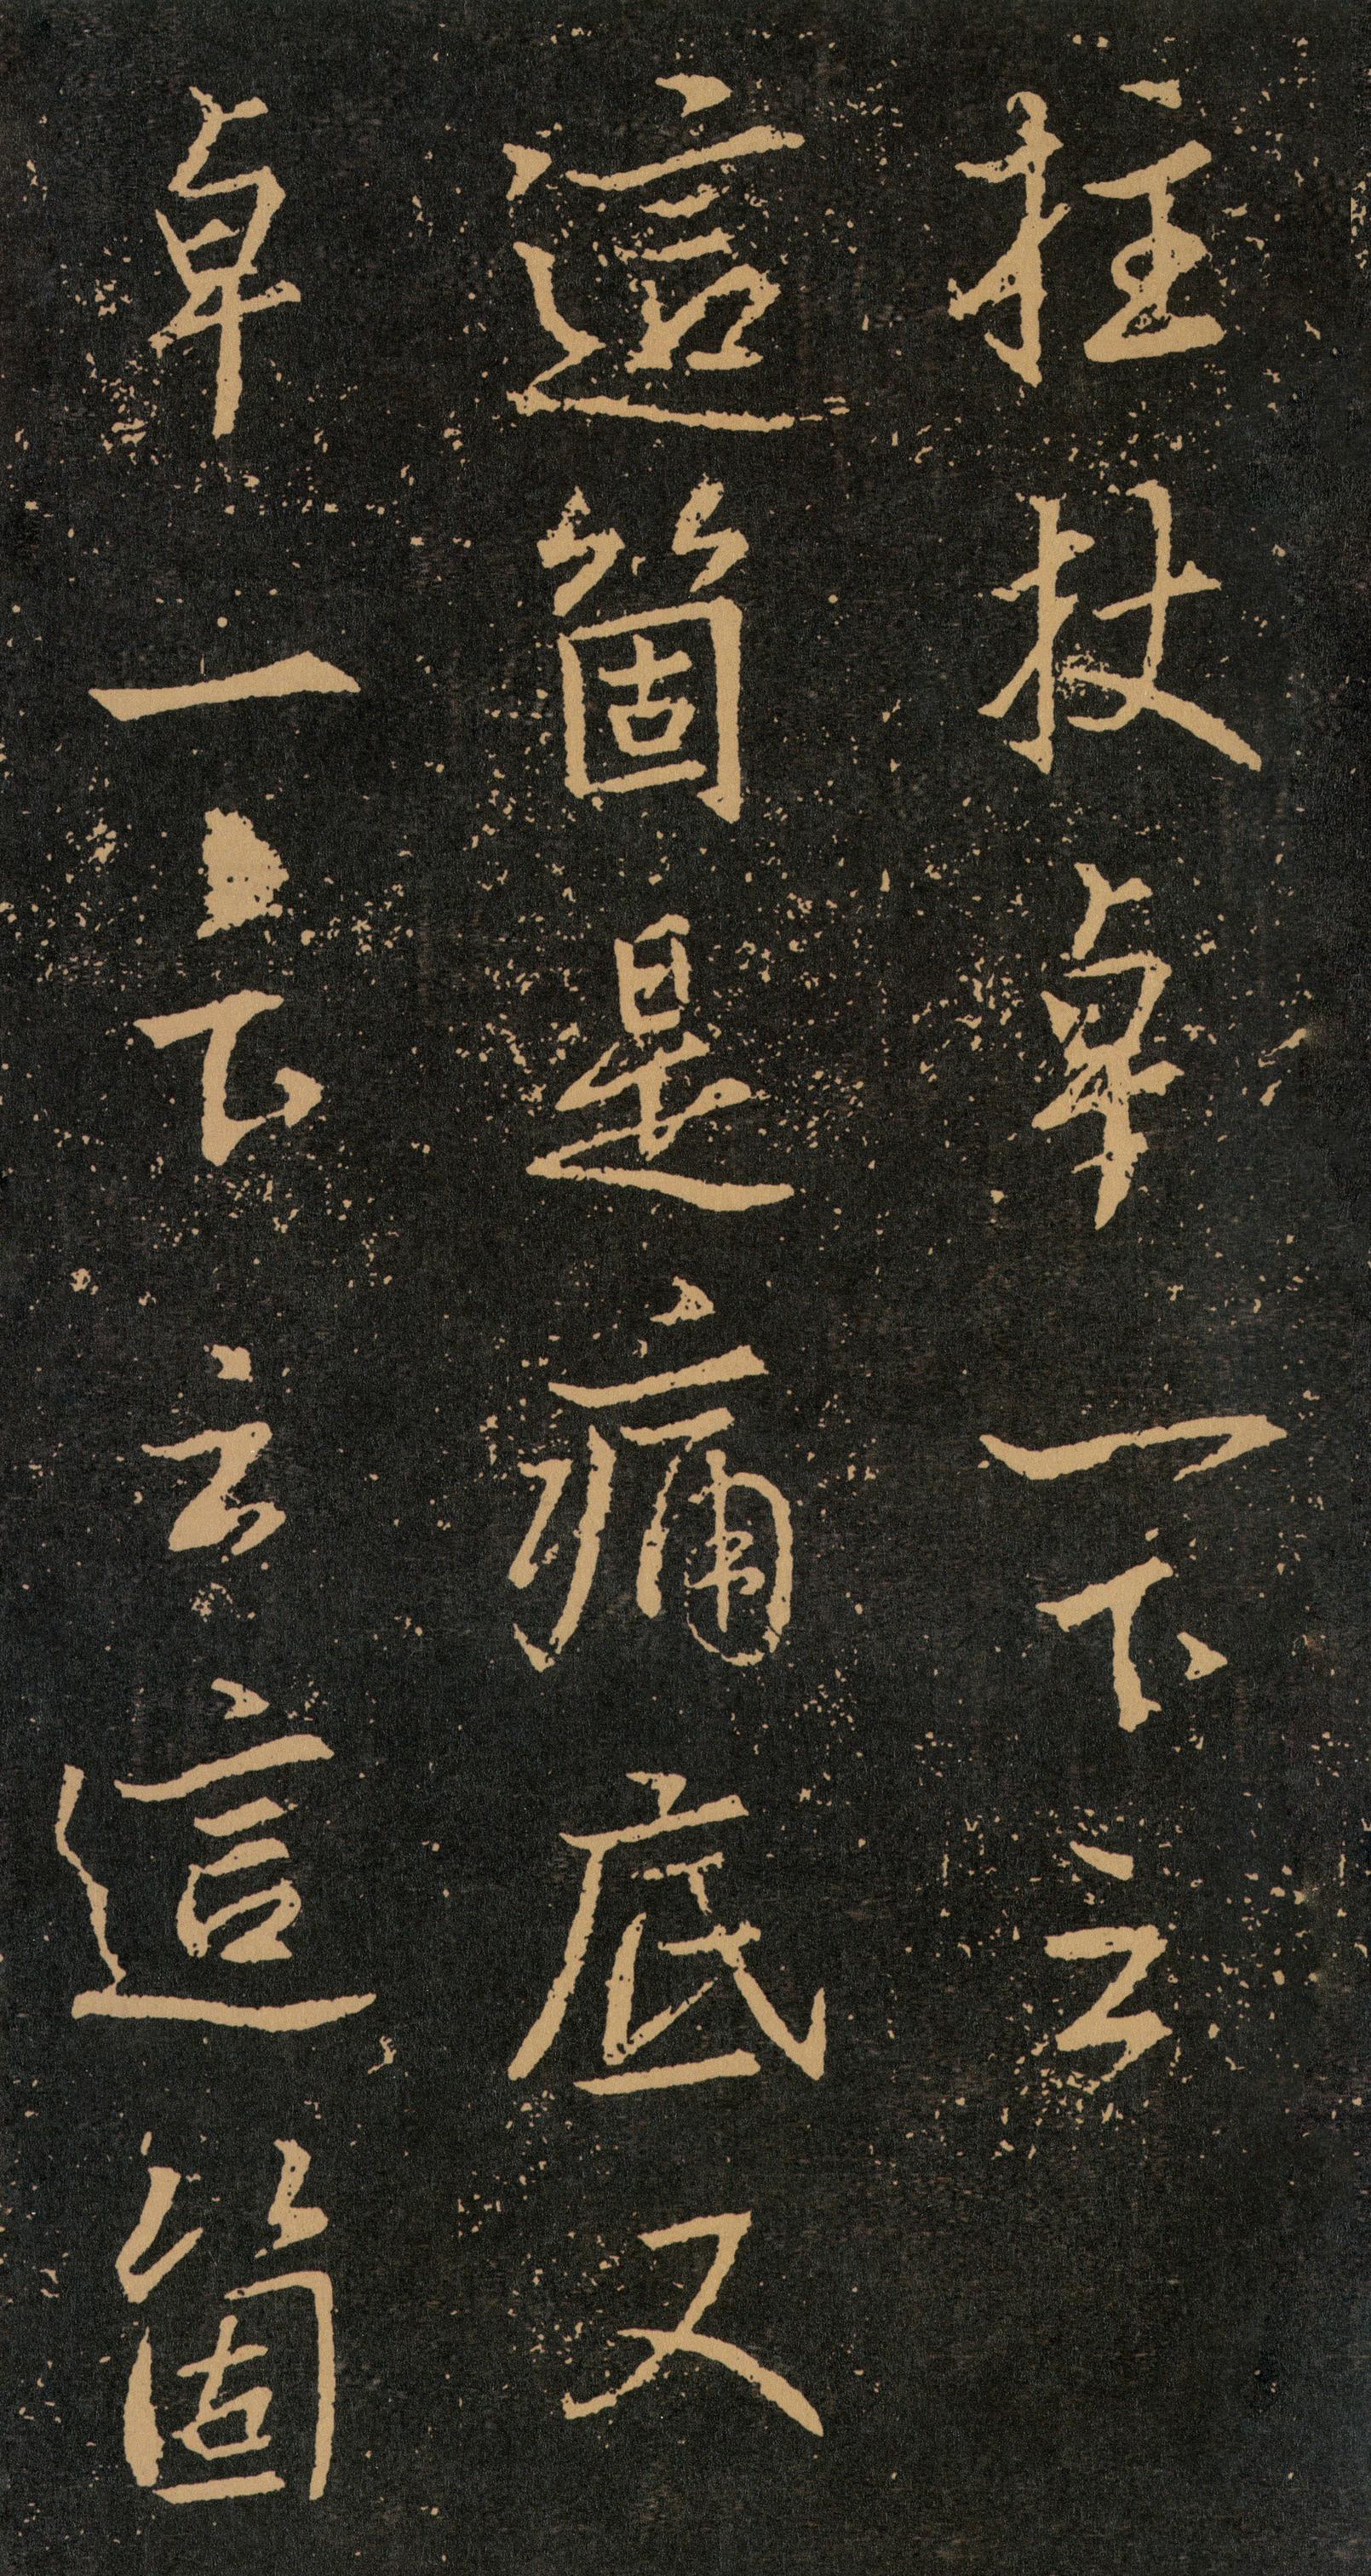 拄杖卓一下云
這箇是痛底又
卓一下云這箇